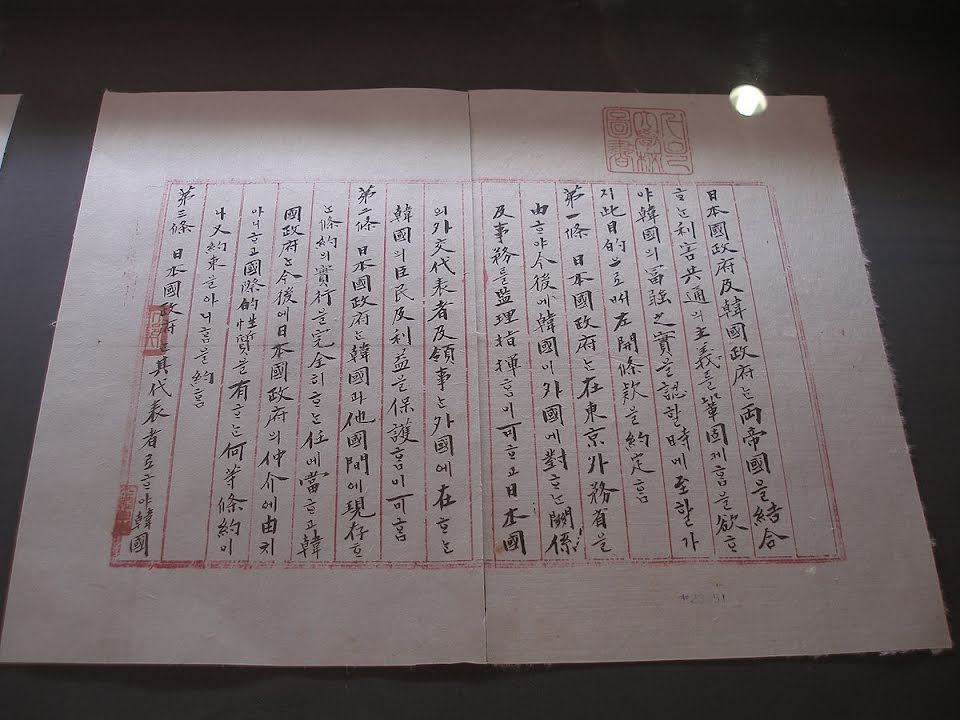 日本國政府及韓國政府ᄂᆞᆫ両帝國을結合
ᄒᆞᄂᆞᆫ利害共通의主義를鞏固케ᄒᆞᆷ을欲ᄒᆞ
야韓國의冨强之實을認ᄒᆞᆯ時에至ᄒᆞᆯ가
지此目的으로ᄡᅥ左開條款을約定ᄒᆞᆷ
第一條 日本國政府ᄂᆞᆫ在東京外務省을
由ᄒᆞ야今後에韓國이外國에對ᄒᆞᄂᆞᆫ關係
及事務를監理指揮ᄒᆞᆷ이可ᄒᆞ고日本國
의外交代表者及領事ᄂᆞᆫ外國에在ᄒᆞᄂᆞᆫ
韓國의臣民及利益을保護ᄒᆞᆷ이可ᄒᆞᆷ
第二條 日本國政府ᄂᆞᆫ韓國과他國間에現存ᄒᆞ
ᄂᆞᆫ條約의實行을完全히ᄒᆞᄂᆞᆫ任에當ᄒᆞ고韓
國政府ᄂᆞᆫ今後에日本國政府의仲介에由치
아니ᄒᆞ고國際的性質을有ᄒᆞᄂᆞᆫ何等條約이
나又約束을아니ᄒᆞᆷ을約ᄒᆞᆷ
第三條 日本國政府ᄂᆞᆫ其代表者로ᄒᆞ야韓國